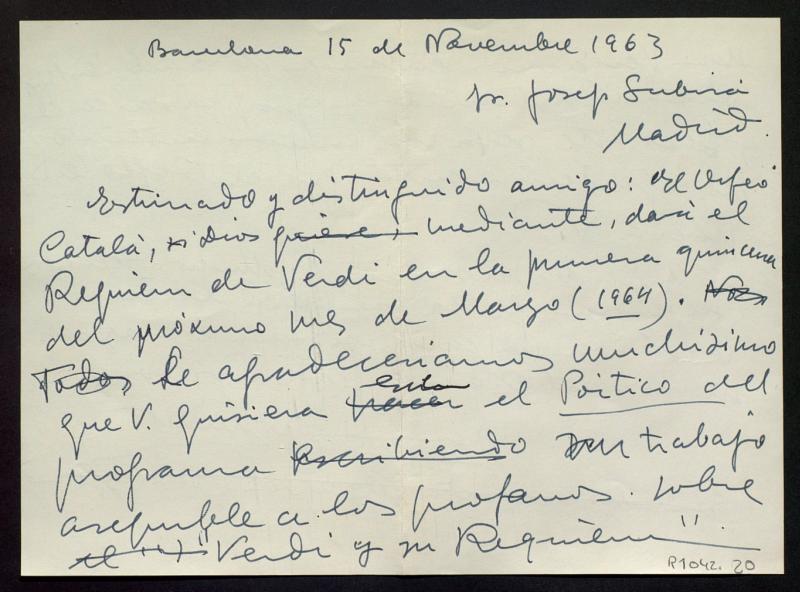 Barcelona 15 de Novembre 1963
Sr. Josep Subirá
Madrid.
Estimado y distinguido amigo: El Orfeó
Català, si Dios quiere, mediante, dará el
Requiem de Verdi en la primera quincena
del próximo mes de Marzo (1964). Nos
Todos le agradeceríamos muchísimo
que V. quisiera hacer en el Pórtico del
programa escribiendo un trabajo
asequible a los profanos sobre
el "Verdi y su Requiem"
P1042. 20